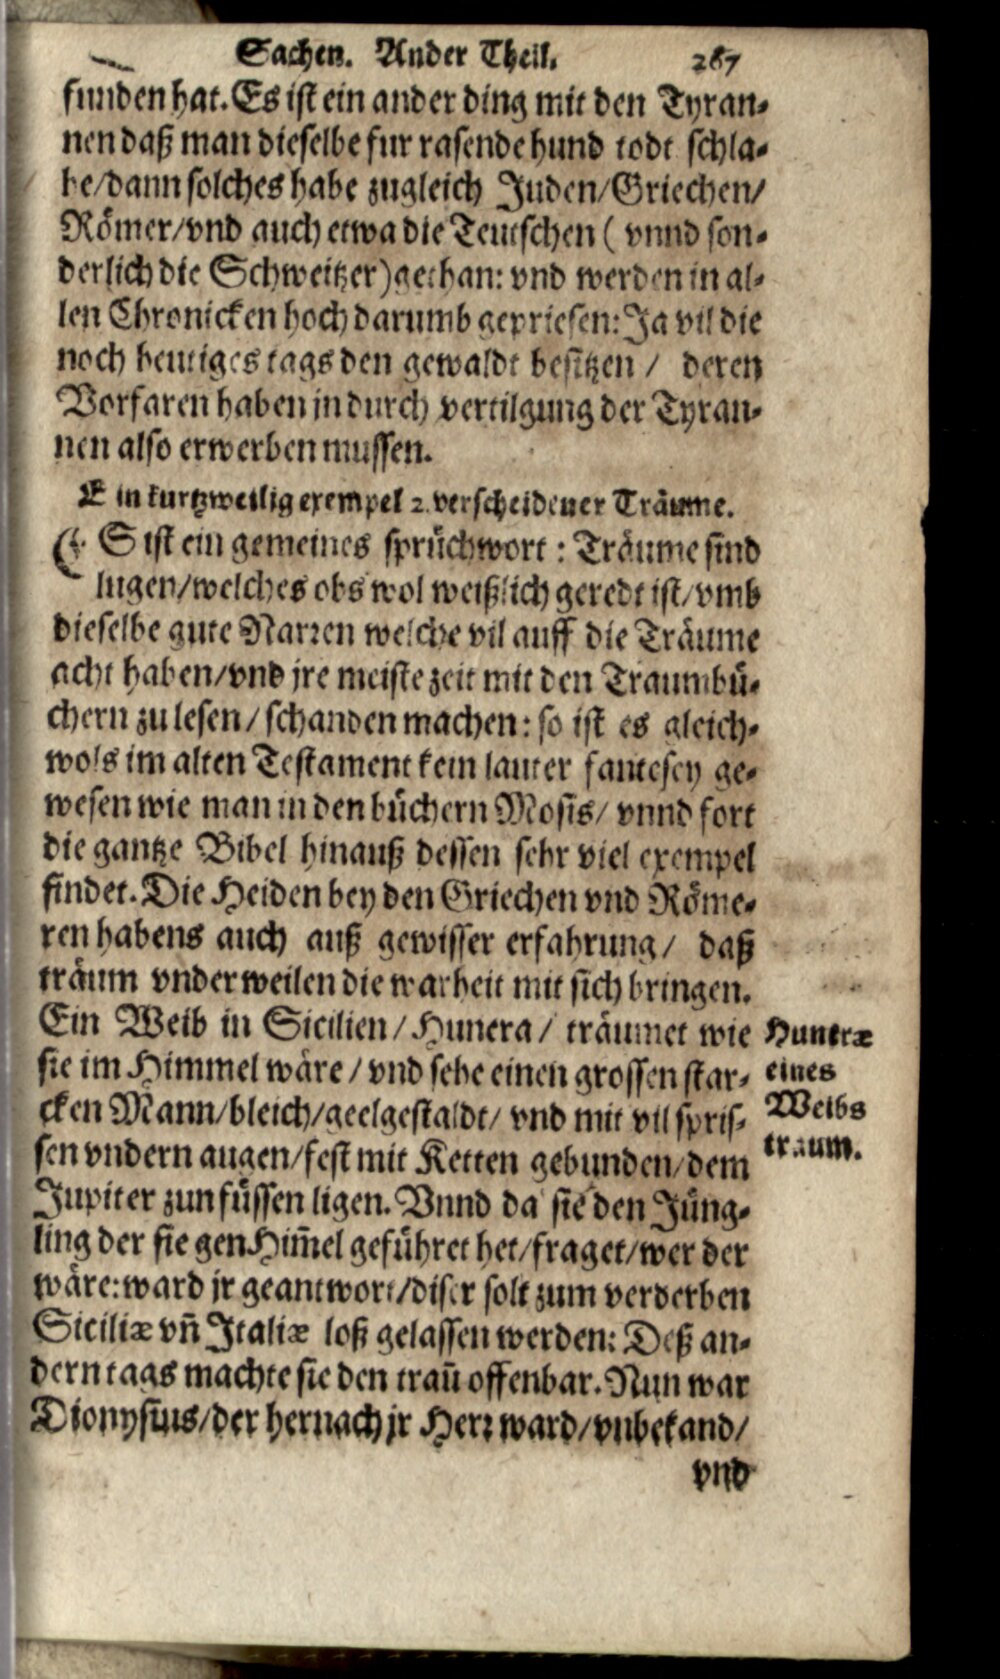 Sachen. Ander Theil. 267
funden hat. Es ist ein ander ding mit den Tyran-
nen daß man dieselbe fur rasende hund todt schla-
he/dann solches habe zugleich Juden/Griechen/
Römer/vnd auch etwa die Teutschen (vnnd son-
derlich die Schweitzer) gethan: vnd werden in al-
len Chronicken hoch darumb gepriesen: Ja vil die
noch heutiges tags den gewaldt besitzen / deren
Vorfaren haben jn durch vertilgung der Tyran-
nen also erwerben mussen.
Ein kurtzweilig exempel 2. verscheidener Träume.
ES ist ein gemeines sprüchwort : Träume sind
lugen/welches obs wol weißlich geredt ist/vmb
dieselbe gute Narren welche vil auff die Träume
acht haben/vnd jre meiste zeit mit den Traumbü-
chern zu lesen/schanden machen: so ist es gleich-
wols im alten Testament kein lauter fantesey ge-
wesen wie man in den büchern Mosis/ vnnd fort
die gantze Bibel hinauß dessen sehr viel exempel
findet. Die Heiden bey den Griechen vnd Röme-
ren habens auch auß gewisser erfahrung/ daß
träum vnderweilen die warheit mit sich bringen.
Ein Weib in Sicilien/Hunera/ träumet wie
sie im Himmel wäre/vnd sehe einen grossen star-
cken Mann/bleich/geelgestaldt/ vnd mit vil spris-
sen vndern augen/fest mit Ketten gebunden/dem
Jupiter zun füssen ligen. Vnnd da sie den Jüng-
ling der sie gen Him̄el geführet het/fraget/wer der
wäre: ward jr geantwort/diser solt zum verderben
Siciliæ vn̄ Italiæ loß gelassen werden: Deß an-
dern tags machte sie den trau᷑ offenbar. Nun war
Dionysius/der hernach jr Herr ward/vnbekand/
vnd
Huneræ
eines
Weibs
traum.